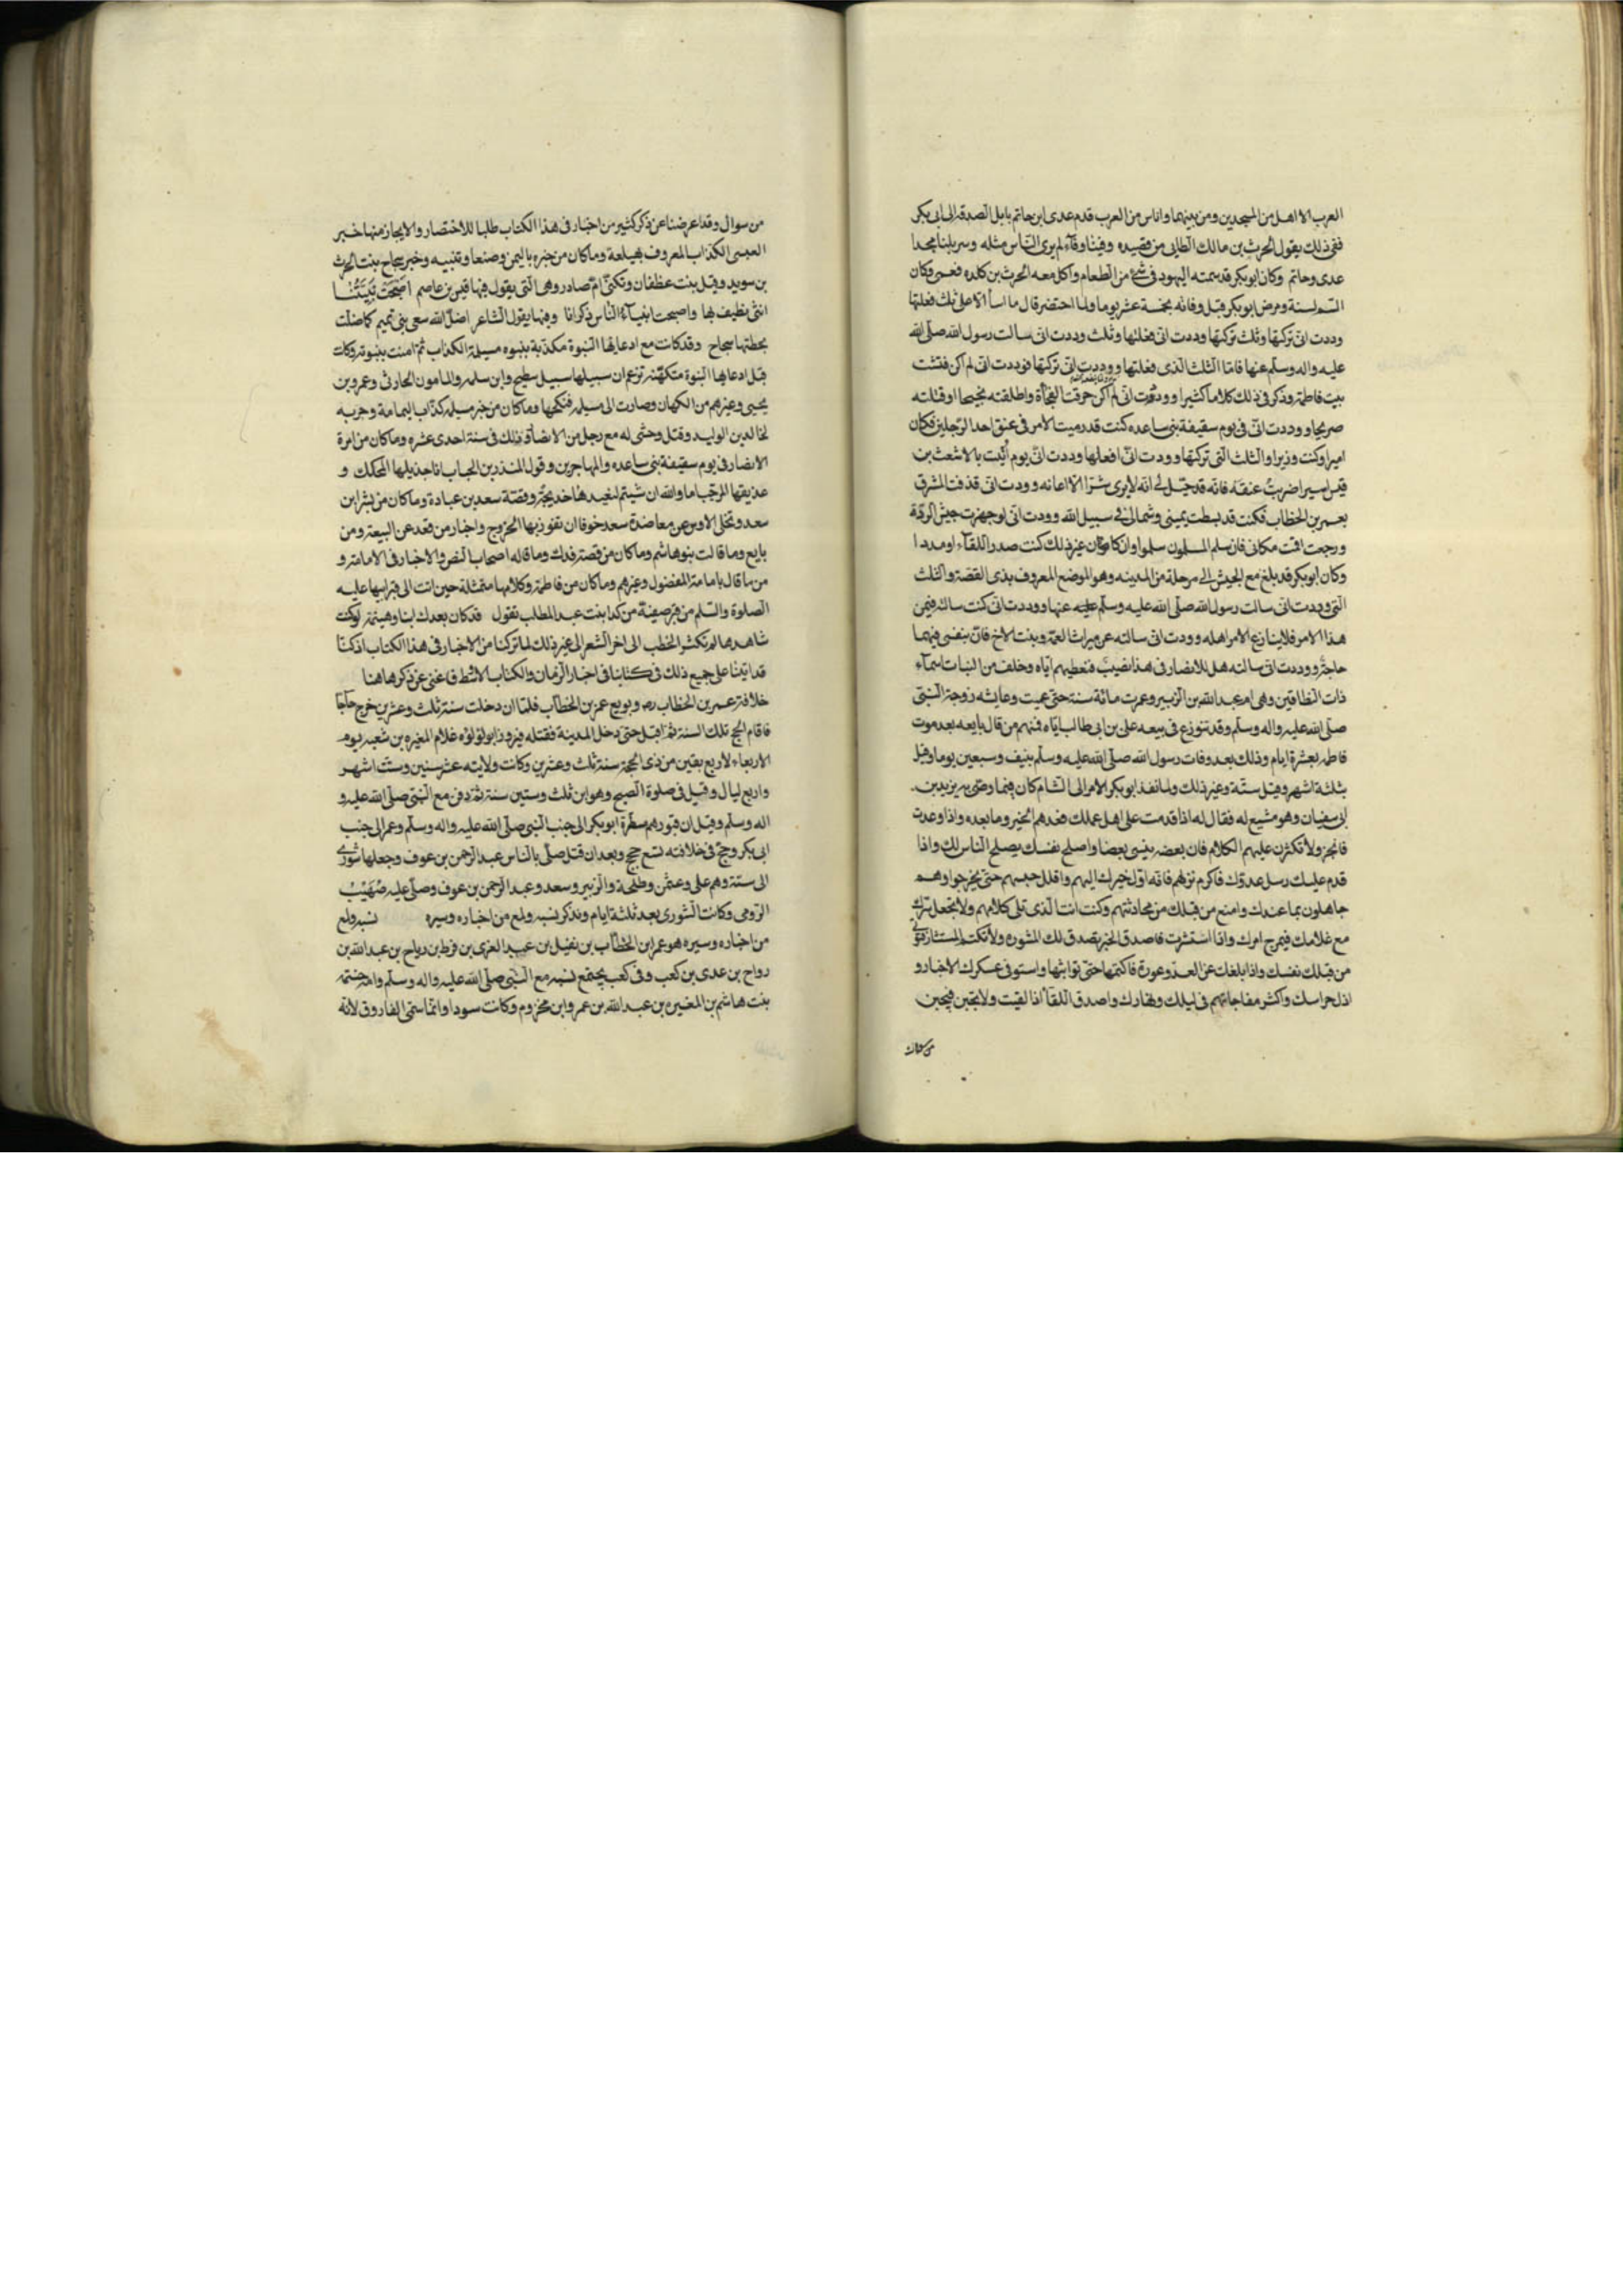 العرب الا اهل من المسجدين ومن بينهما واناس من العرب قدم عدى ابن حاتم بابل الصدقه الى ابى بكر
ففى ذلك يقول الحرث بن مالك الطايى من قصيده وفينا وفآء لم يرى النّاس مثله وسربلنا مجدا
عدى وحاتم وكان ابو بكر قد سمته اليهود فى شئ من الطعام واكل معه الحرث بن كلده فعمى وكان
السّم لسنة ومرض ابو بكر قبل وفاته بخمسة عشر يوما ولما احتضر قال ما اسأ الا على ثلث فعلتها
وددت انى تركتها وثلث تركتها وددت انى فعلتها وثلث وددت انى سالت رسول الله صلّى الله
عليه واله وسلّم عنها فامّا الثلث الّذى فعلتها ووددت انّى تركتها فوددت انى لم اكن فتشت
بيت فاطمة وذكر فى ذلك كلاما كثيرا ووددت انى لم اكن حرقت الفجاة واطلقته نجيحا او قتلته
صريحا ووددت انّى فى يوم سقيفة بنى ساعده كنت قد رميت الامر فى عنق احد الرّجلين فكان
اميرا وكنت وزيرا والثلث التى تركتها وودت انى افعلها وددت انّى يوم اُتيت بالاشعث بن
قيس اسير اضربتُ عنقه فانّه قد خيّل لى انّه لا يرى شرّا الا اعانه وودت انى قذفت المشرق
بعمر بن الخطاب فكنت قد بسطت يمينى وشمالى فى سبيل الله وودت انّى لو جهزت جيش الردّة
ورجعت اقمت مكانى فان سلم المسلمون سلموا وان كان غير ذلك كنت صدر اللقآء او مددا
وكان ابو بكر قد بلغ مع الجيش الى مرحلة من المدينه وهو الموضع المعروف بذى القصّة والثلث
الّتى وددت انى سالت رسول الله صلّى الله عليه وسلّم عنها ووددت انى كنت سالته فيمن
هذا الامر فلا ينازع الامر اهله وودت انى سالته عن ميراث العمّة وبنت الاخ فانّ بنفسى فيهما
حاجة ووددت انى سالته هل للانصار فى هذا نصيبٌ فنعطيهم ايّاه وخلف من البنات اسمآء
ذات النطاقين وهى ام عبد الله بن الزّبير وعمرت مائة سنة حتى عميت وعايشه زوجة النّبى
صلّى الله عليه واله وسلّم وقد تنوزع فى بيعه على بن ابى طالب ايّاه فمنهم من قال بايعه بعد موت
فاطمه بعشرة ايام وذلك بعد وفات رسول الله صلّى الله عليه وسلّم بنيف وسبعين يوما وقيل
بثلثة اشهر وقيل ستّة وغير ذلك ولما نفذ ابو بكر الامر الى الشام كان فيما وصّى به يزيد بن
ابى سفيان وهو مشيع له فقال له اذا قدمت على اهل عملك فعدهم الخير وما بعده واذا وعدت
فانجز ولا تكثرن عليهم الكلام فان بعضه ينسى بعضا واصلح نفسك يصلح النّاس لك واذا
قدم عليك رسل عدوّك فاكرم نزلهم فانّه اوّل خيرك اليهم واقلل حبسهم حتى يخرجوا وهم
جاهلون بما عندك وامنع من قبلك من محادثتهم وكنت انت الّذى تلى كلامهم ولا تجعل سرّك
مع علانيتك فيمرج امرك واذا استشرت فاصدق الخبر تصدق لك المشوره ولا تكتم المستشار فتؤتى
من قبلك نفسك واذا بلغك عن العدوّ عورة فاكتمها حتّى تواتيها واستر فى عسكرك الاخبار و
اذل حراسك واكثر مفاجاتهم فى ليلك ونهارك واصدق اللقآ اذا لقيت ولا تجبن فيجبن
من سواك
من سواك وقد اعرضنا عن ذكر كثير من اخبار فى هذا الكتاب طلبا للاختصار والايجاز منها خبر
العبسى الكذاب المعروف بعيلهة وما كان من خبره باليمن وصنعا وتنبيه وخبر سجاح بنت الحرث
بن سويد وقيل بنت عظفان وتكنّى امّ صادر وهى الّتى يقول فيها قيس بن عاصم اَضْحَتْ نَبِيّتُنَا
انثى نطيف بها واصبحت انبيآء النّاس ذكرانا وفيها يقول الشاعر اضلّ الله سعى بنى تميم كما ضلّت
بخطبتها سجاح وقد كانت مع ادعايها النّبوة مكذبة بنبوه مسيلمة الكذاب ثمّ امنت بنبوته وكانت
قبل ادعايها النّبوة متكهّنه تزعم ان سبيلها سبيل سطيح وابن سلمه والمامون الحارثى وعمرو بن
يحيى وغيرهم من الكهان وصارت الى مسيلمه فنكحها وما كان من خبر مسيلمه كذّاب اليمامة وحربه
لخالد بن الوليد وقتل وحشى له مع رجل من الانصار وذلك فى سنة احدى عشره وما كان من امرة
الانصار فى يوم سقيفة بنى ساعده والمهاجرين وقول المنذر بن الحباب انا جذيلها المحكك و
عذيقها المرجّب اما والله ان شيتم لنعيدها جذعة وقصّة سعد بن عبادة وما كان من بشر ابن
سعد وتخلى الاوس عن معاضدة سعد خوفا ان تفوز بها الخزرج واخبار من قعد عن البيعة ومن
بايع وما قالت بنو هاشم وما كان من قصة فدك وما قاله اصحاب النص والاخبار فى الامامة و
من ما قال بامامة المفضول وغيرهم وما كان من فاطمة وكلامها متمثلة حين اتت الى قبر ابيها عليه
الصلوة والسّلم من قبر صفية من كدا بنت عبد المطلب تقول قد كان بعدك انبا وهينمة لو كنت
شاهدها لم تكثر الخطب الى اخر الشعر الى غير ذلك لما تركنا من الاخبار فى هذا الكتاب اذ كنّا
قد اتينا على جميع ذلك فى كتابنا فى اخبار الزّمان والكتاب الاوسط فاغنى عن ذكرها هنا
خلافة عمر بن الخطاب ره وبويع عمر بن الخطّاب فلمّا ان دخلت سنة ثلث وعشرين خرج حاجّا
فاقام الحج تلك السنة ثمّ اقبل حتى دخل المدينة فقتله فيروز ابو لؤلؤه غلام المغيره بن شعبه يوم
الاربعاء لاربع بقين من ذى الحجة سنة ثلث وعشرين وكانت ولايته عشر سنين وستّ اشهر
واربع ليال وقيل فى صلوة الصبح وهو ابن ثلث وستين سنة ثمّ دفن مع النّبى صلّى الله عليه و
اله وسلّم وقيل ان قبورهم سطرة ابو بكر الى جنب النّبى صلّى الله عليه واله وسلّم وعمر الى جنب
ابى بكر وحجّ فى خلافته تسع حجج وبعد ان قتل صلّى بالنّاس عبد الرّحمن بن عوف وجعلها شورى
الى ستّة وهم على وعثمن وطلحة والزّبير وسعد وعبد الرّحمن بن عوف وصلّى عليه صُهَيْبُ
الرّومى وكانت الشورى بعد ثلثة ايام ونذكر نسبه ولمع من اخباره وسيره نسبه ولمع
من اخباره وسيره هو عمر ابن الخطّاب بن نفيل بن عبد العزى بن قرط بن رياح بن عبد الله بن
رواح بن عدى بن كعب وفى كعب يجتمع نسبه مع النّبى صلّى الله عليه واله وسلّم وامه حنتمه
بنت هاشم بن المغيره بن عبد الله بن عمرو ابن مخزوم وكانت سودا وانّما سمّى الفاروق لانّه